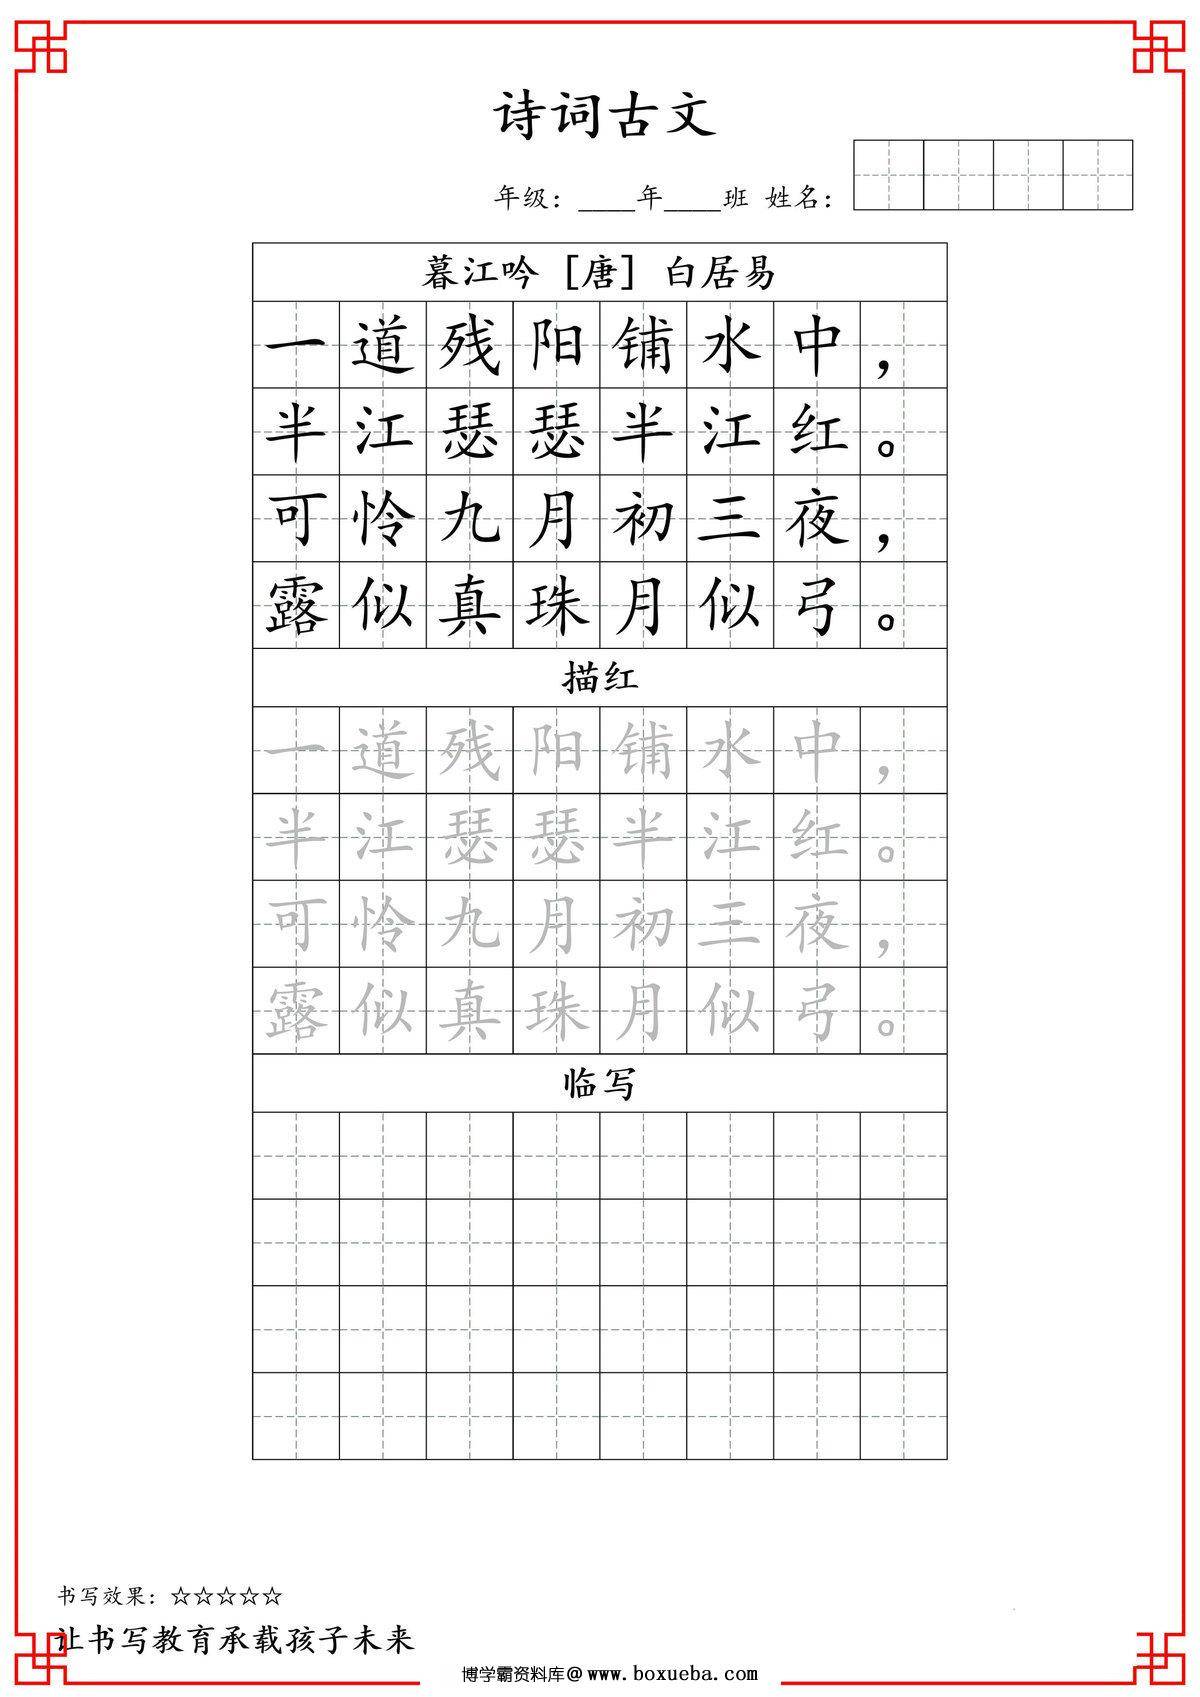 诗词古文
年级：____年____班 姓名：
暮江吟 [唐] 白居易
一道残阳铺水中，
半江瑟瑟半江红。
可怜九月初三夜，
露似真珠月似弓。
描红
一道残阳铺水中，
半江瑟瑟半江红。
可怜九月初三夜，
露似真珠月似弓。
临写
书写效果：☆☆☆☆☆
让书写教育承载孩子未来
博学霸资料库@www.boxueba.com